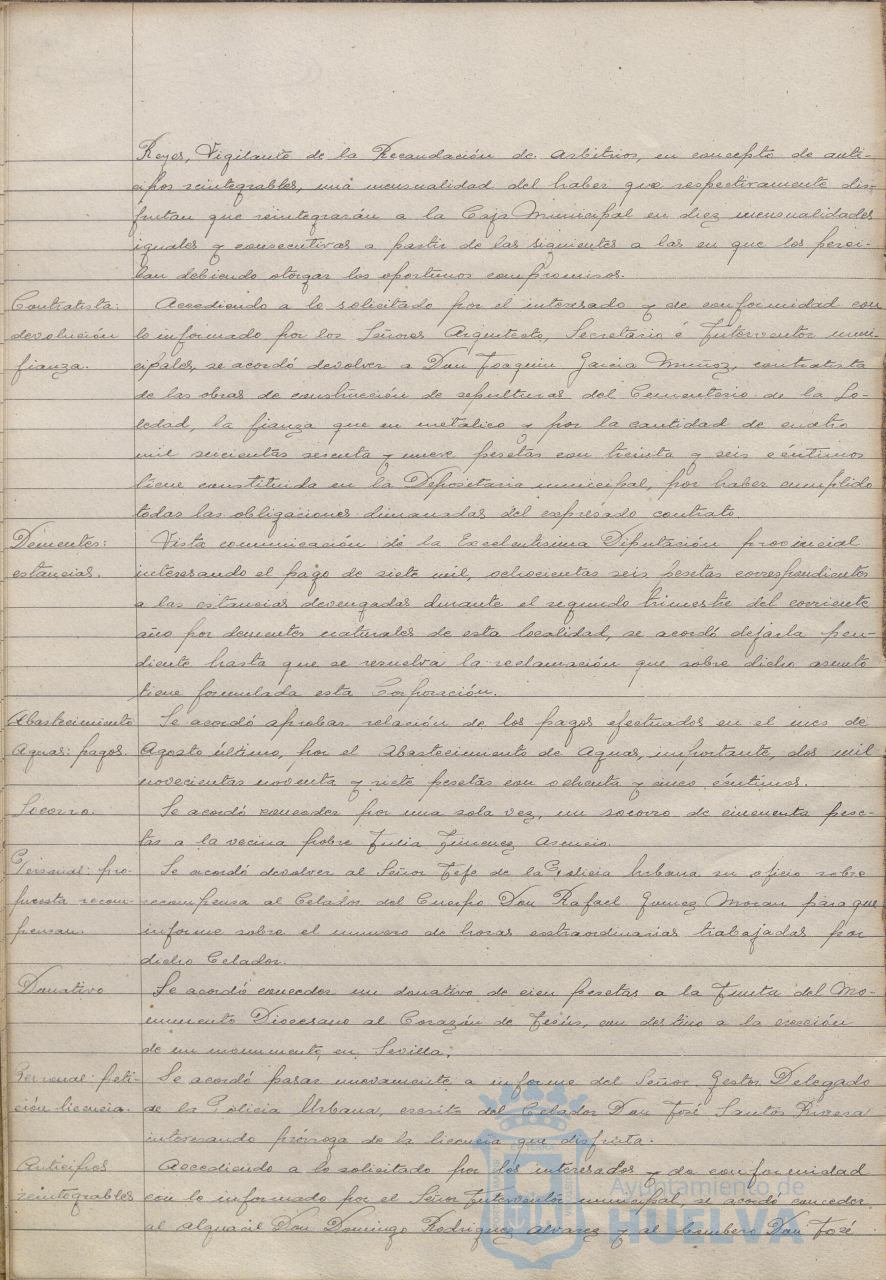 Reyes, Vigilante de la Recaudación de Arbitrios, en concepto de anti-
cipos reintegrables, una mensualidad del haber que respectivamente dis-
frutan que reintegrarán a la Caja Municipal en diez mensualidades
iguales y consecutivas a partir de las siguientes a las en que los perci-
ban debiendo otorgar los oportunos compromisos.
Contratista: Accediendo a lo solicitado por el interesado y de conformidad con
devolución lo informado por los Señores Arquitecto, Secretario é Interventor muni-
fianza. cipales, se acordó devolver a Don Joaquin Garcia Muñoz, contratista
de las obras de construcción de sepulturas del Cementerio de la So-
ledad, la fianza que en metalico y por la cantidad de cuatro
mil seiscientas sesenta y nueve pesetas con treinta y seis céntimos
tiene constituida en la Depositaria municipal, por haber cumplido
todas las obligaciones dimanadas del expresado contrato.
Dementes: Vista comunicación de la Excelentisima Diputación provincial
estancias. interesando el pago de siete mil, ochocientas seis pesetas correspondientes
a las estancias devengadas durante el segundo trimestre del corriente
año por dementes naturales de esta localidad, se acordó dejarla pen-
diente hasta que se resuelva la reclamación que sobre dicho asunto
tiene formulada esta Corporación.
Abastecimiento Se acordó aprobar relación de los pagos efectuados en el mes de
Aguas: pagos. Agosto último, por el Abastecimiento de Aguas, importante, dos mil
novecientas noventa y siete pesetas con ochenta y cinco céntimos.
Socorro. Se acordó conceder por una sola vez, un socorro de cincuenta pese-
tas a la vecina pobre Julia Jimenez Asencio.
Personal: pro- Se acordó devolver al Señor Jefe de la Policia Urbana su oficio sobre
puesta recom- recompensa al Celador del Cuerpo Don Rafael Gomez Moran para que
pensas. informe sobre el numero de horas extraordinarias trabajadas por
dicho Celador.
Donativo Se acordó conceder un donativo de cien pesetas a la Junta del Mo-
numento Diocesano al Corazón de Jesús, con destino a la erección
de un monumento en Sevilla.
Personal: peti- Se acordó pasar nuevamente a informe del Señor Gestor Delegado
ción licencia. de la Policia Urbana, escrito del Celador Don José Santos Rivera
interesando prórroga de la licencia que disfruta.
Anticipos Accediendo a lo solicitado por los interesados y de conformidad
reintegrables con lo informado por el Señor Interventor municipal, se acordó conceder
al alguacil Don Domingo Rodriguez Alvarez y al bombero Don José
Ayuntamiento de
HUELVA